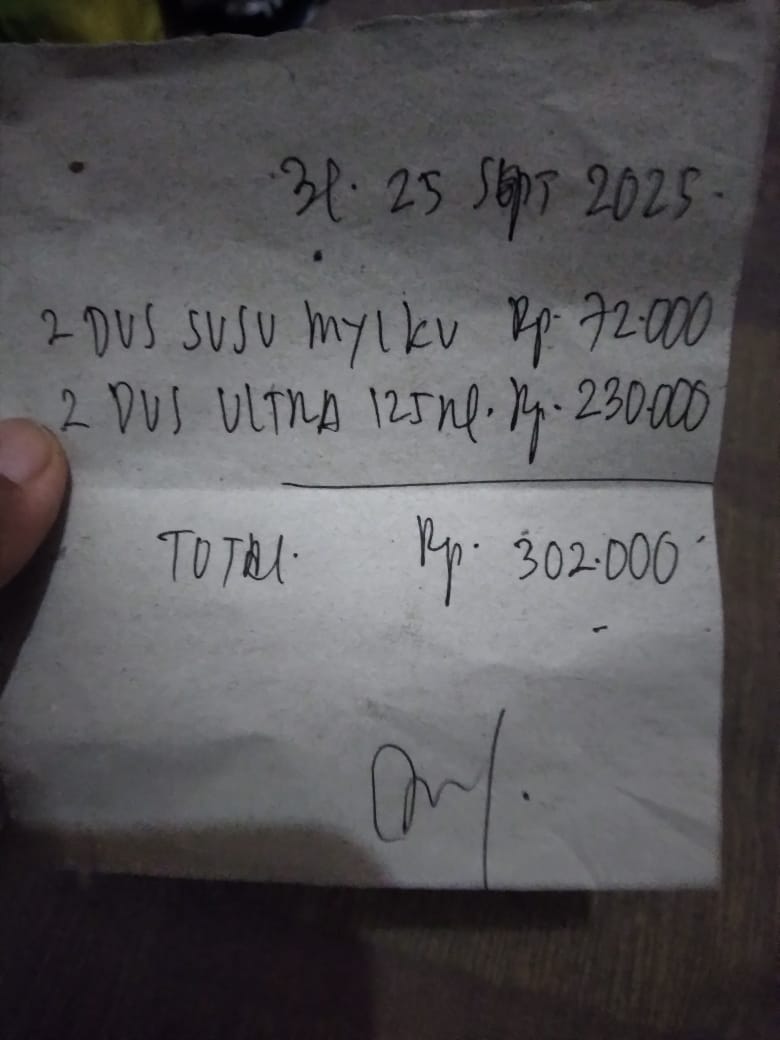 Jl. 25 SEPT 2025.
2 DUS SUSU MYLKU Rp. 72.000
2 DUS ULTRA 125 Ml. Rp. 230.000
TOTAL. Rp. 302.000